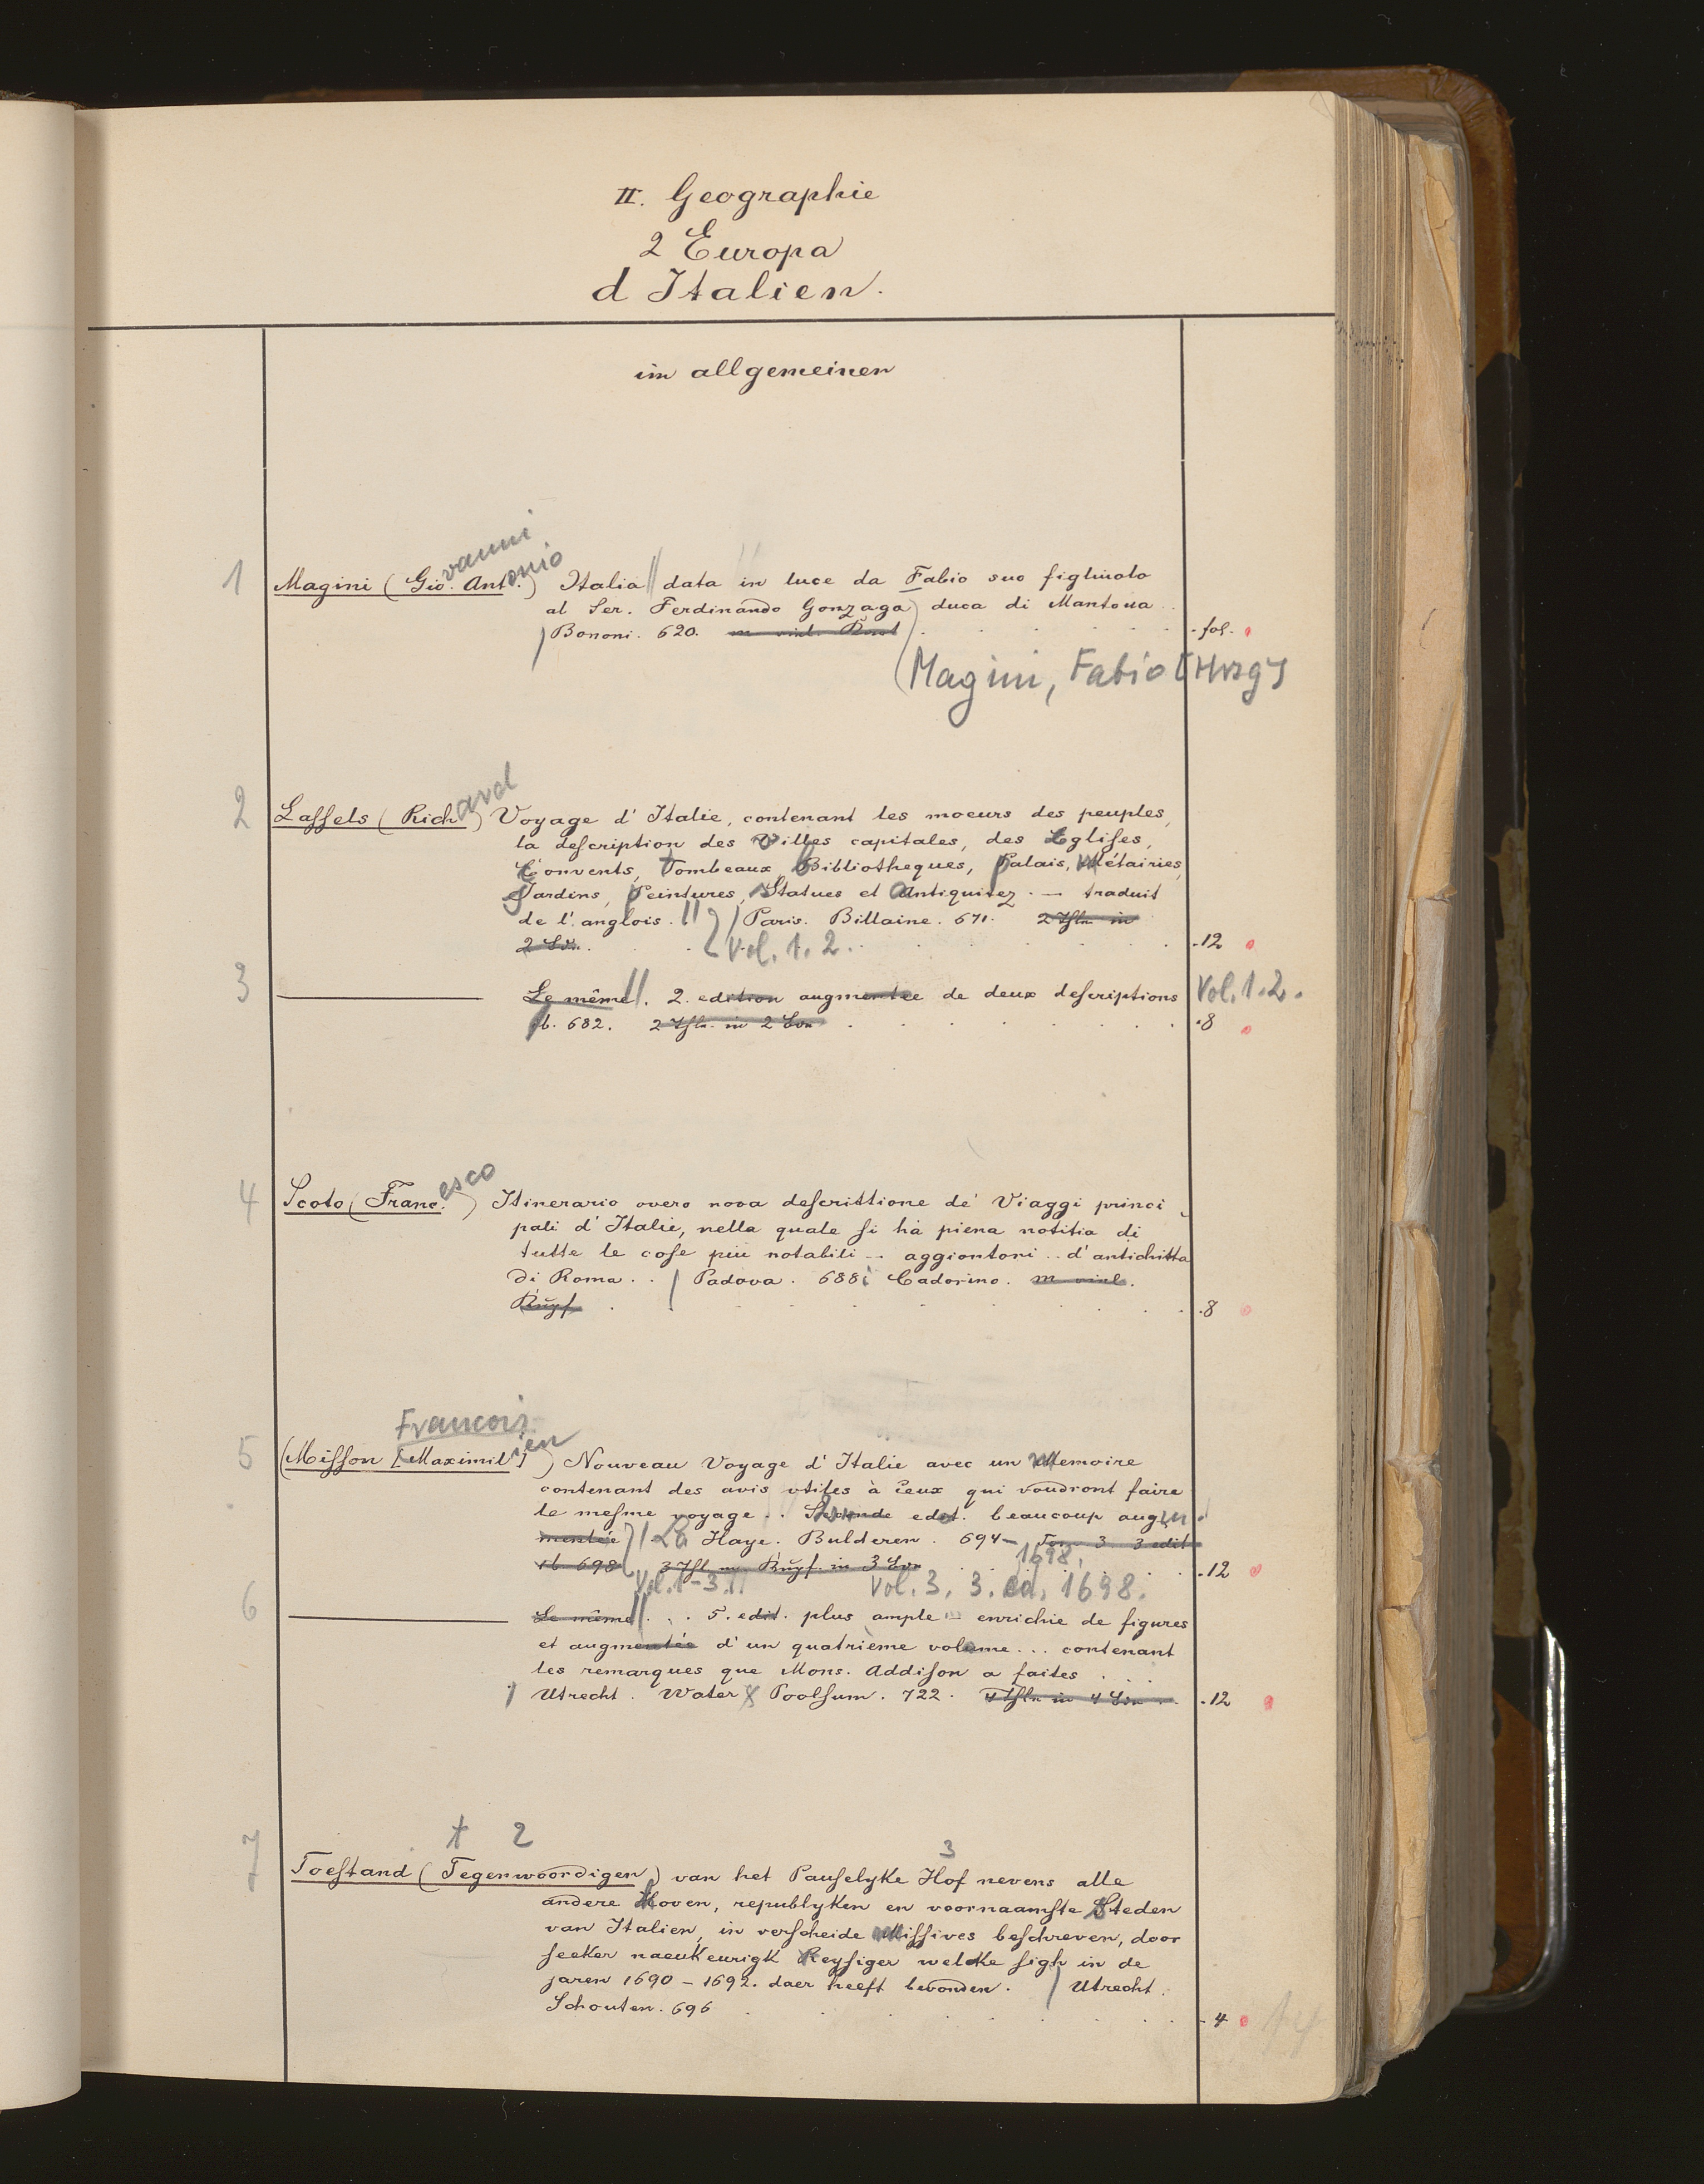 II. Geographie
2 Europa
d Italien.
im allgemeinen
1 Magini (Giovanni Antonio) Italia // data in luce da Fabio suo figliuolo
al Ser. Ferdinando Gonzaga) duca di Mantoua
/ Bononi. 620. fol.
(Magini, Fabio [Hrsg]
2 Laſſels (Richard) Voyage d' Italie, contenant les moeurs des peuples,
la deſcription des villes capitales, des Egliſes,
Convents, Tombeaux, Bibliotheques, Palais, Métairies,
Jardins, Peintures, Statues et Antiquitez. — traduit
de l'anglois. // / Paris. Billaine. 671. 2 Thle. in
2 Bdn. Vol. 1. 2. 12
3 Le même //. 2. edition augmentée de deux deſcriptions Vol. 1.2.
ib. 682. 2 Thle. in 2 Bdn 8
4 Scoto (Francesco) Itinerario overo nova deſcrittione de' Viaggi princi
pali d' Italie, nella quale ſi hà piena notitia di
tutte le coſe più notabili .. aggiontoni .. d'antichitta
di Roma .. / Padova. 688. Cadorino. m. viel.
Kupf. 8
François
5 (Miſſon [Maximilien]) Nouveau Voyage d' Italie avec un Memoire
contenant des avis utiles à ceux qui voudront faire
le meſme voyage .. Seconde edit. beaucoup aug
mentée / La Haye. Bulderen. 694— Tom 3. 3 edit
ib 698 3 Thl. m. Kupf. in 3 Bdn 1698. 12
Vol. 1-3. Vol. 3. 3. ed. 1698.
6 Le même // .. 5. edit. plus ample — enrichie de figures
et augmentée d'un quatrième volume ... contenant
les remarques que Mons. Addiſon a faites . . .
/ Utrecht. Water & Poolſum. 722. 4 Thle in 4 Bdn 12
t 2 3
7 Toeſtand (Tegenwoordigen) van het Pauſelyke Hof nevens alle
andere Hoven, republyken en voornaamſte Steden
van Italien, in verſcheide Miſſives beſchreven, door
ſeeker naeukeurigk Reyſiger welcke ſigh in de
jaren 1690 – 1692. daer heeft bevonden. / Utrecht.
Schouten. 696 4